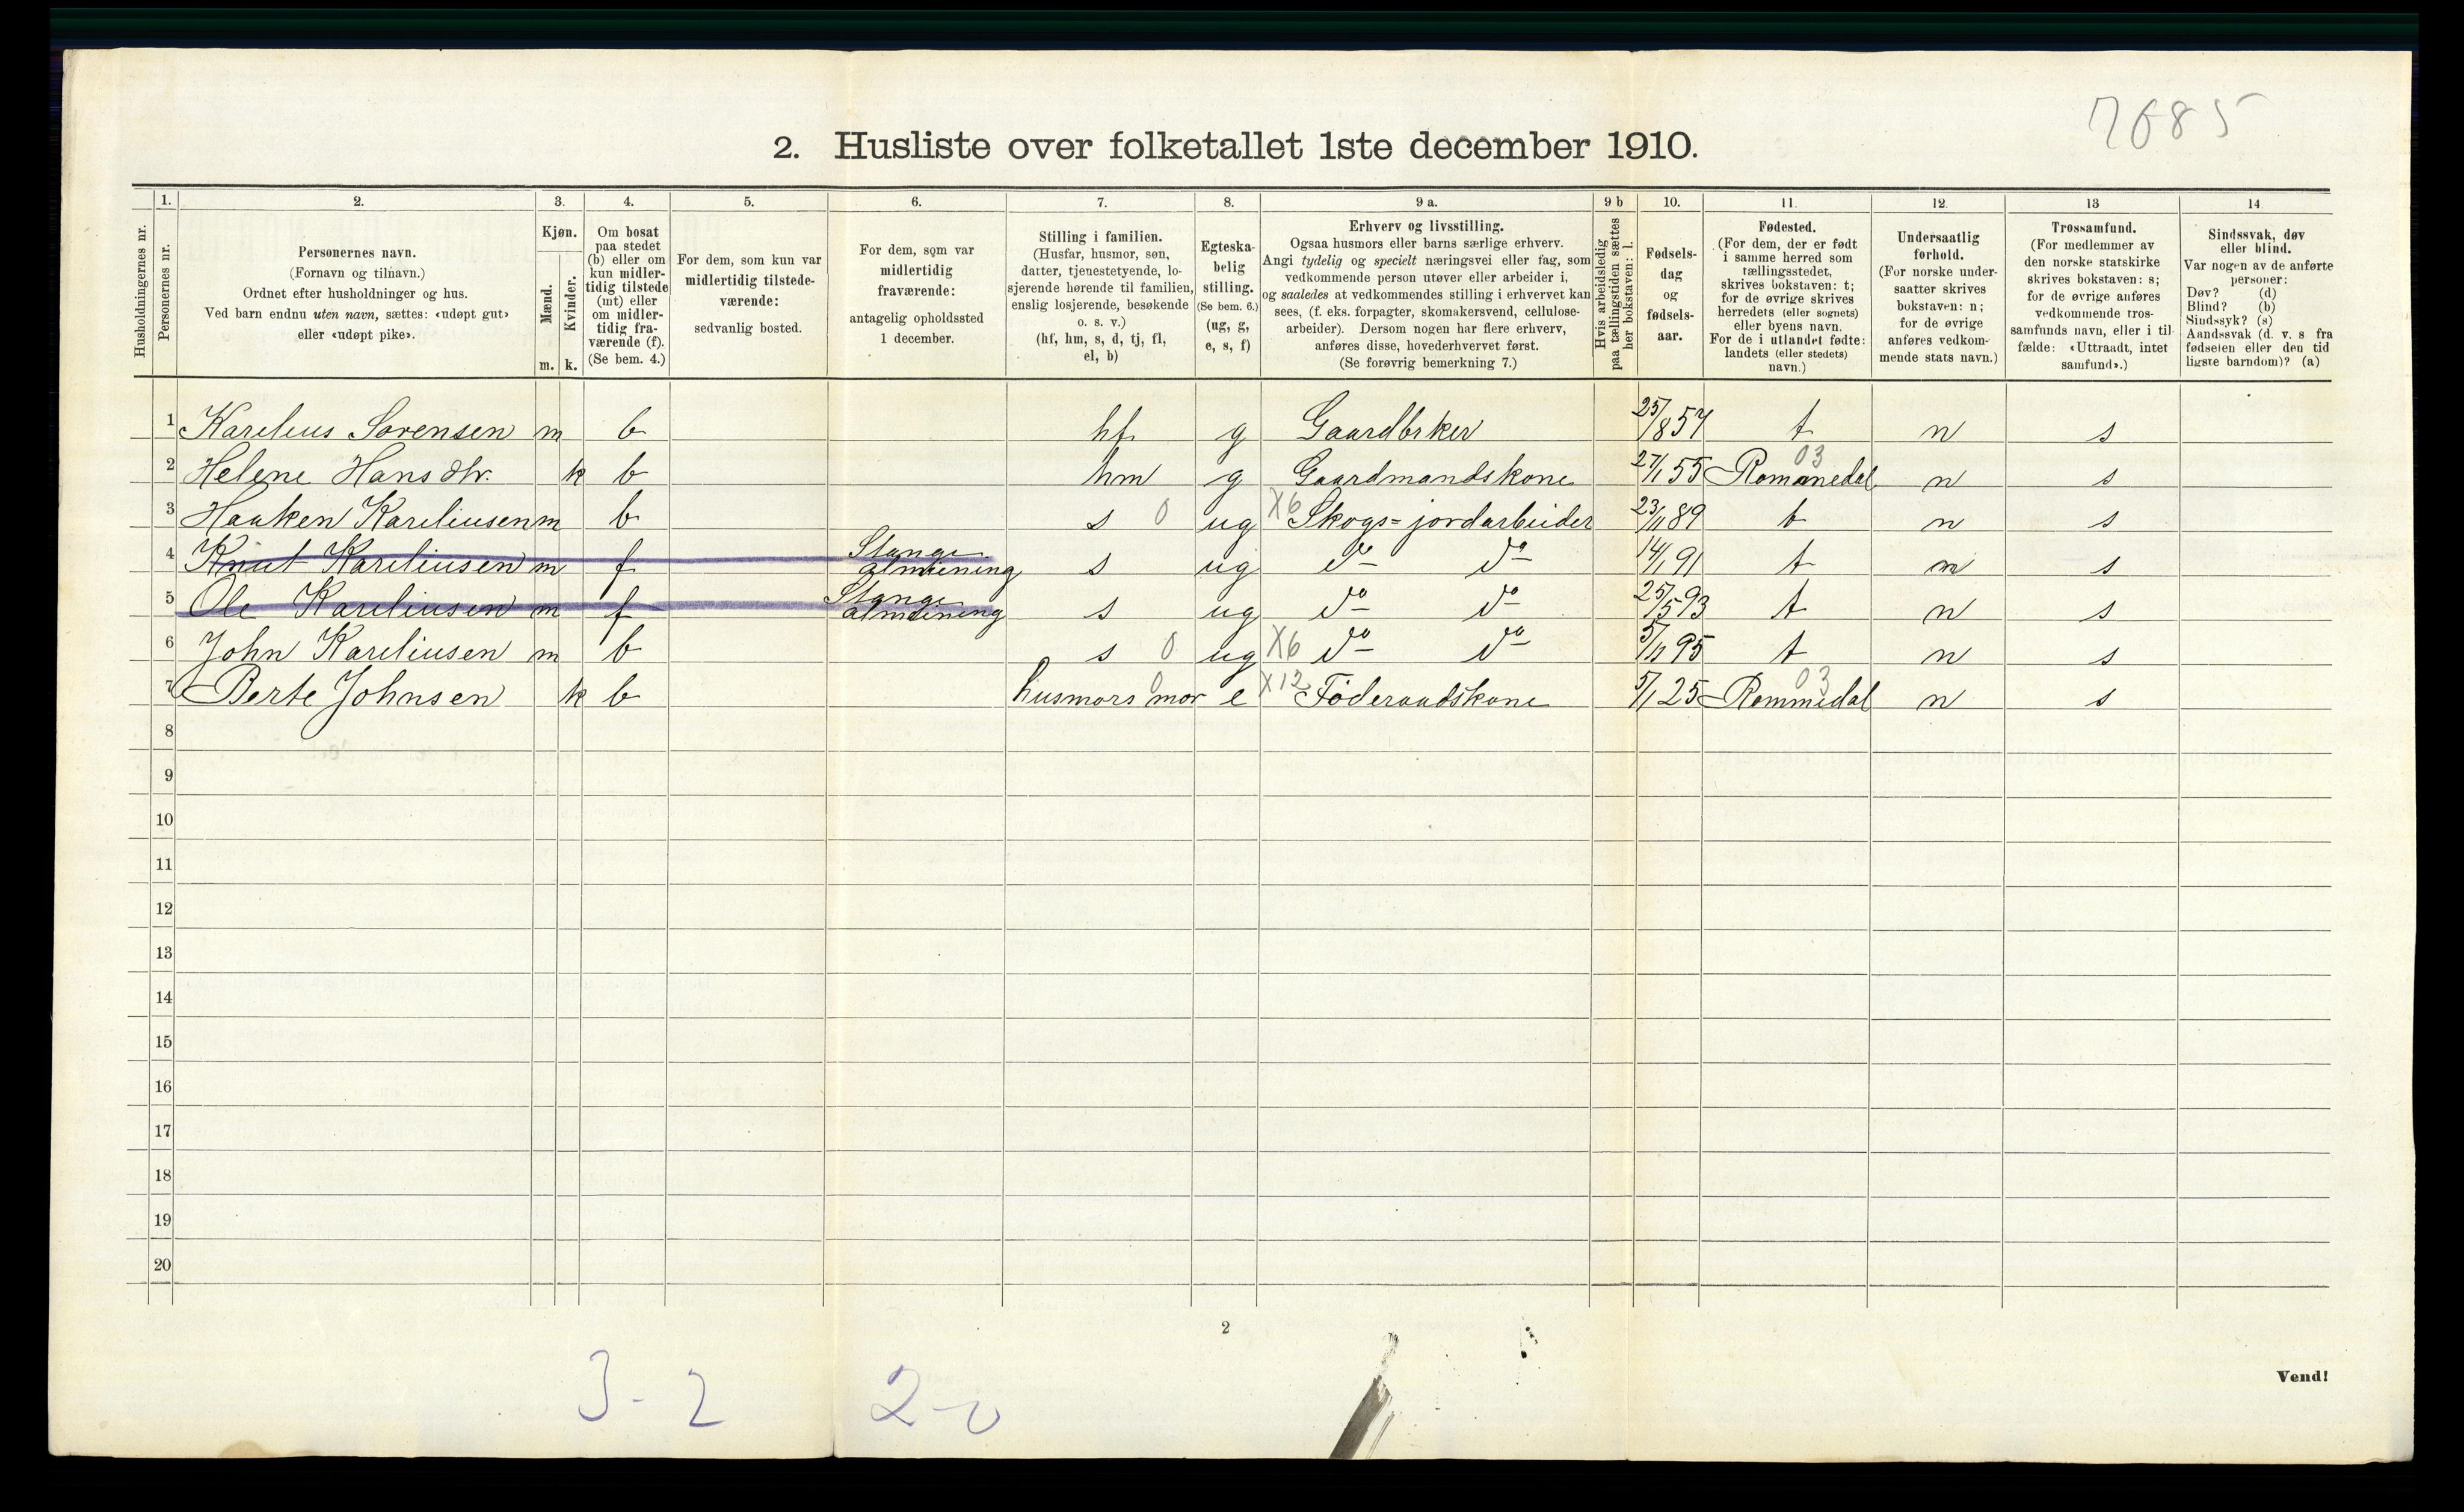 7685
2. Husliste over folketallet 1ste december 1910.
Husholdningernes nr.
1. Personernes nr.
2.
Personernes navn.
(Fornavn og tilnavn.)
Ordnet efter husholdninger og hus.
Ved barn endnu uten navn, sættes: «udøpt gut»
eller «udøpt pike».
3.
Kjøn.
Mænd. m.
Kvinder. k.
4.
Om bosat
paa stedet
(b) eller om
kun midler-
tidig tilstede
(mt) eller
om midler-
tidig fra-
værende (f).
(Se bem. 4.)
5.
For dem, som kun var
midlertidig tilstede-
værende:
sedvanlig bosted.
6.
For dem, som var
midlertidig
fraværende:
antagelig opholdssted
1 december.
7.
Stilling i familien.
(Husfar, husmor, søn,
datter, tjenestetyende, lo-
sjerende hørende til familien,
enslig losjerende, besøkende
o. s. v.)
(hf, hm, s, d, tj, fl,
el, b)
8.
Egteska-
belig
stilling.
(Se bem. 6.)
(ug, g,
e, s, f)
9 a.
Erhverv og livsstilling.
Ogsaa husmors eller barns særlige erhverv.
Angi tydelig og specielt næringsvei eller fag, som
vedkommende person utøver eller arbeider i,
og saaledes at vedkommendes stilling i erhvervet kan
sees, (f. eks. forpagter, skomakersvend, cellulose-
arbeider). Dersom nogen har flere erhverv,
anføres disse, hovederhvervet først.
(Se forøvrig bemerkning 7.)
9 b
Hvis arbeidsledig
paa tællingstiden sættes
her bokstaven: l.
10.
Fødsels-
dag
og
fødsels-
aar.
11.
Fødested.
(For dem, der er født
i samme herred som
tællingsstedet,
skrives bokstaven: t;
for de øvrige skrives
herredets (eller sognets)
eller byens navn.
For de i utlandet fødte:
landets (eller stedets)
navn.)
12.
Undersaatlig
forhold.
(For norske under-
saatter skrives
bokstaven: n;
for de øvrige
anføres vedkom-
mende stats navn.)
13
Trossamfund.
(For medlemmer av
den norske statskirke
skrives bokstaven: s;
for de øvrige anføres
vedkommende tros-
samfunds navn, eller i til-
fælde: «Uttraadt, intet
samfund».)
14.
Sindssvak, døv
eller blind.
Var nogen av de anførte
personer:
Døv? (d)
Blind? (b)
Sindssyk? (s)
Aandssvak (d. v. s fra
fødselen eller den tid
ligste barndom)? (a)
1 Karelius Sørensen m b hf g Gaardbrker 25/8 57 t n s
2 Helene Hansdtr. k b hm g Gaardmandskone 27/1 55 Romanedal 03 n s
3 Haaken Kareliusen m b s 0 ug X6 Skogs= jordarbeider 23/11 89 t n s
4 Knut Kareliusen m f Stange almening s ug do do 14/1 91 t n s
5 Ole Kareliusen m f Stange almening s ug do do 25/5 93 t n s
6 John Kareliusen m b s 0 ug X6 do do 5/11 95 t n s
7 Berte Johnsen k b husmors mor 0 e X12 Föderaadskone 5/1 25 Rommedal 03 n s
8
9
10
11
12
13
14
15
16
17
18
19
20
2
Vend!
3-2 2-0